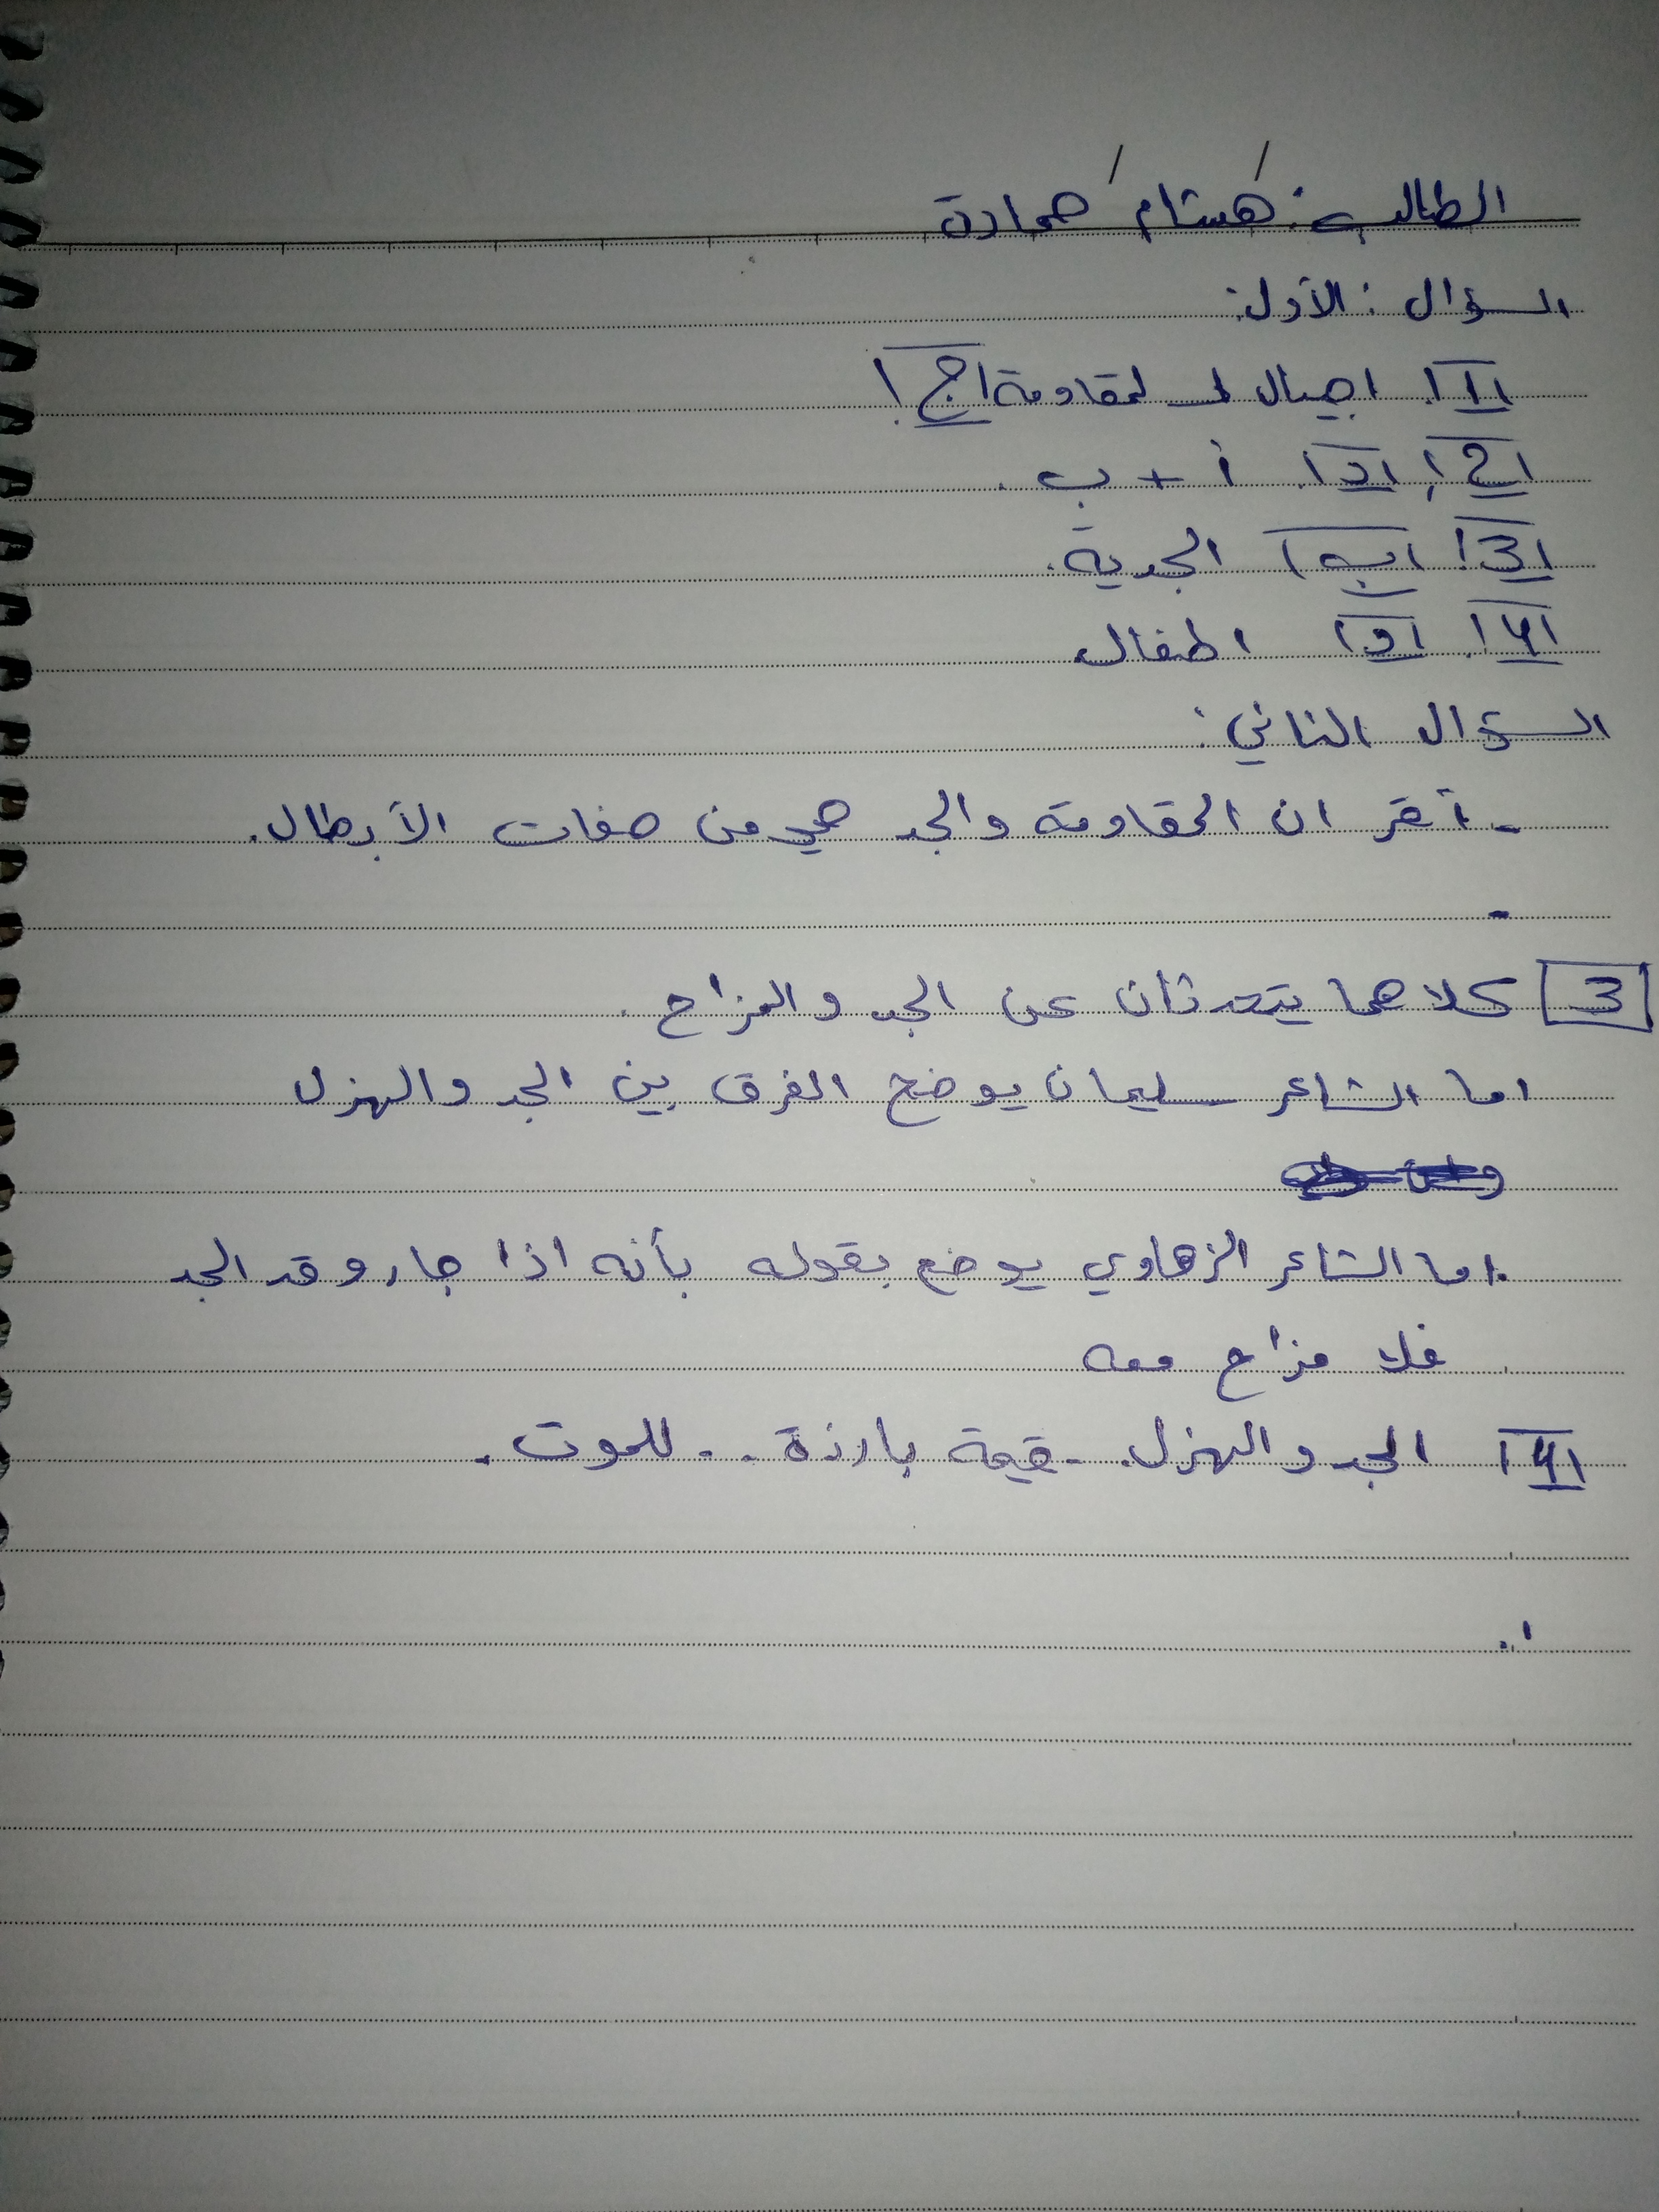 الطالب: هشام حمادة
السؤال: الأول:
1 اجيال المقاومة ج
2 د أ + ب.
3 ب الجدية.
4 د اطفال
السؤال الثاني:
- أقر ان المقاومة والجد هي من صفات الأبطال.
-
3 كلاهما يتحدثان عن الجد والمزاح.
اما الشاعر سليمان يوضح الفرق بين الجد والهزل
اما الشاعر الزهاوي يوضح بقوله بأنه اذا جار وقد الجد
فلا مزاح معه
4 الجد والهزل. - قيمة بارزة.. للموت.